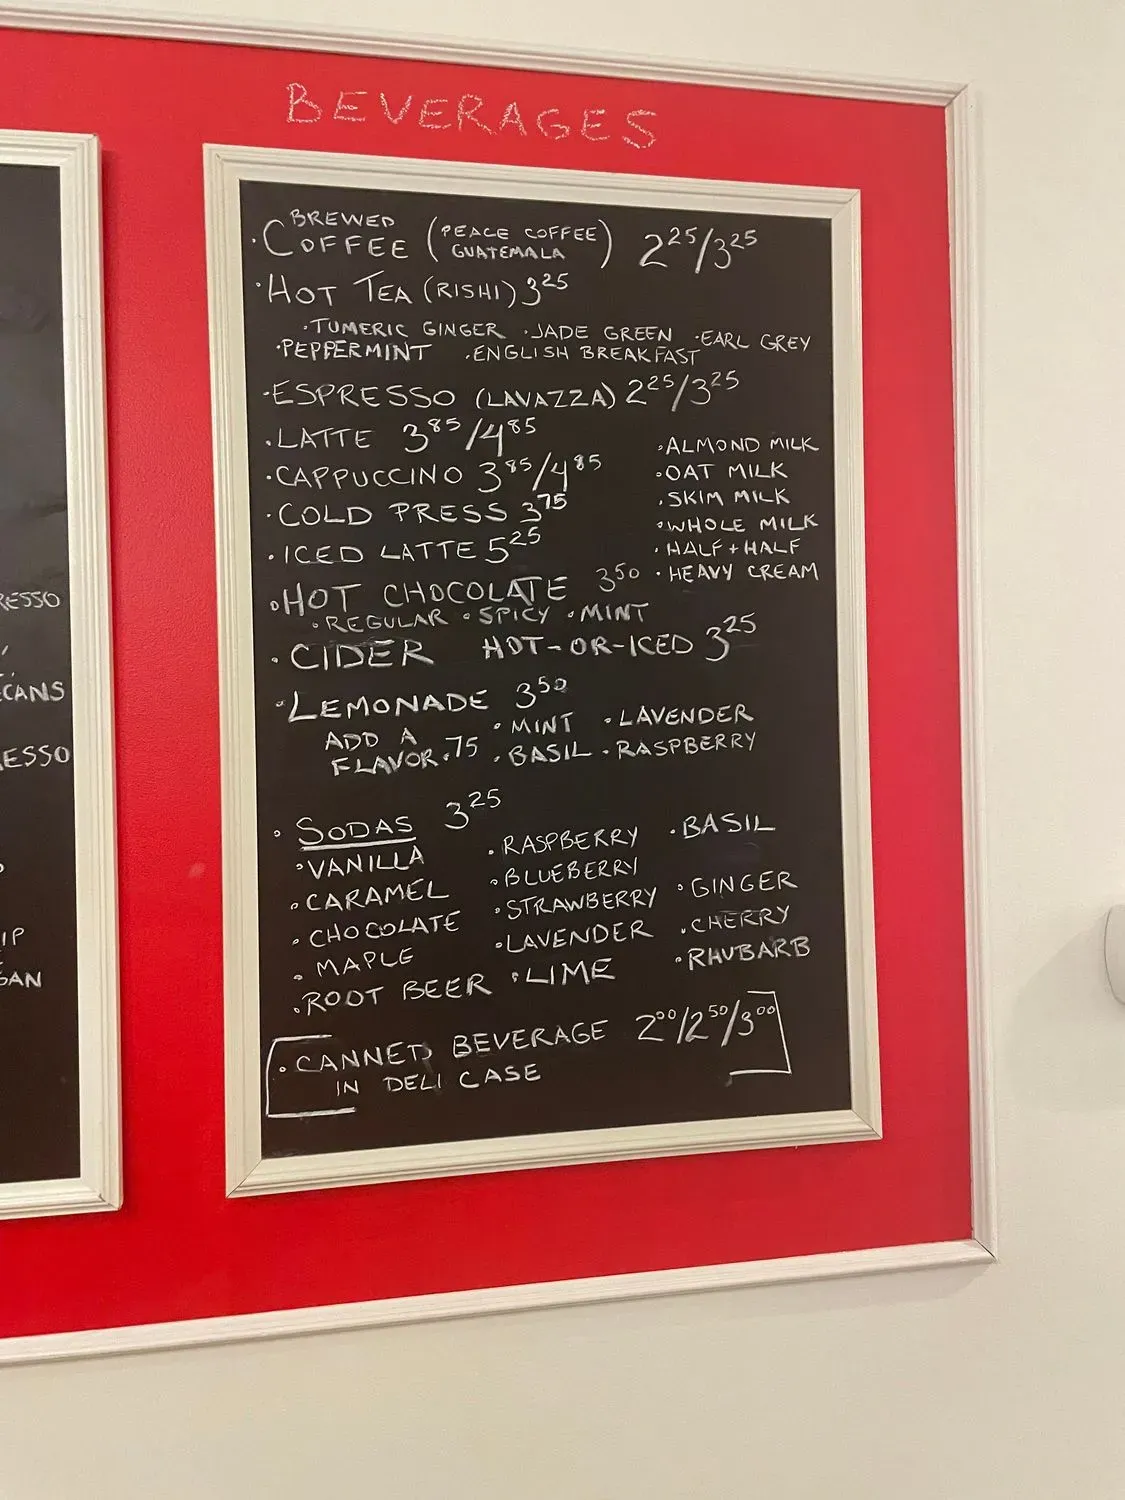 RESSO
CANS
ESSO
IP
GAN
BEVERAGES
· BREWED COFFEE (PEACE COFFEE GUATEMALA) 2²⁵/3²⁵
· HOT TEA (RISHI) 3²⁵
· TUMERIC GINGER · JADE GREEN · EARL GREY
· PEPPERMINT · ENGLISH BREAKFAST
· ESPRESSO (LAVAZZA) 2²⁵/3²⁵
· LATTE 3⁸⁵/4⁸⁵
· CAPPUCCINO 3⁸⁵/4⁸⁵
· COLD PRESS 3⁷⁵
· ICED LATTE 5²⁵
· ALMOND MILK
· OAT MILK
· SKIM MILK
· WHOLE MILK
· HALF + HALF
· HEAVY CREAM
· HOT CHOCOLATE 3⁵⁰
· REGULAR · SPICY · MINT
· CIDER HOT-OR-ICED 3²⁵
· LEMONADE 3⁵⁰
ADD A
FLAVOR .75
· MINT · LAVENDER
· BASIL · RASPBERRY
· SODAS 3²⁵
· VANILLA
· CARAMEL
· CHOCOLATE
· MAPLE
· ROOT BEER
· RASPBERRY
· BLUEBERRY
· STRAWBERRY
· LAVENDER
· LIME
· BASIL
· GINGER
· CHERRY
· RHUBARB
· CANNED BEVERAGE 2⁰⁰/2⁵⁰/3⁰⁰
IN DELI CASE